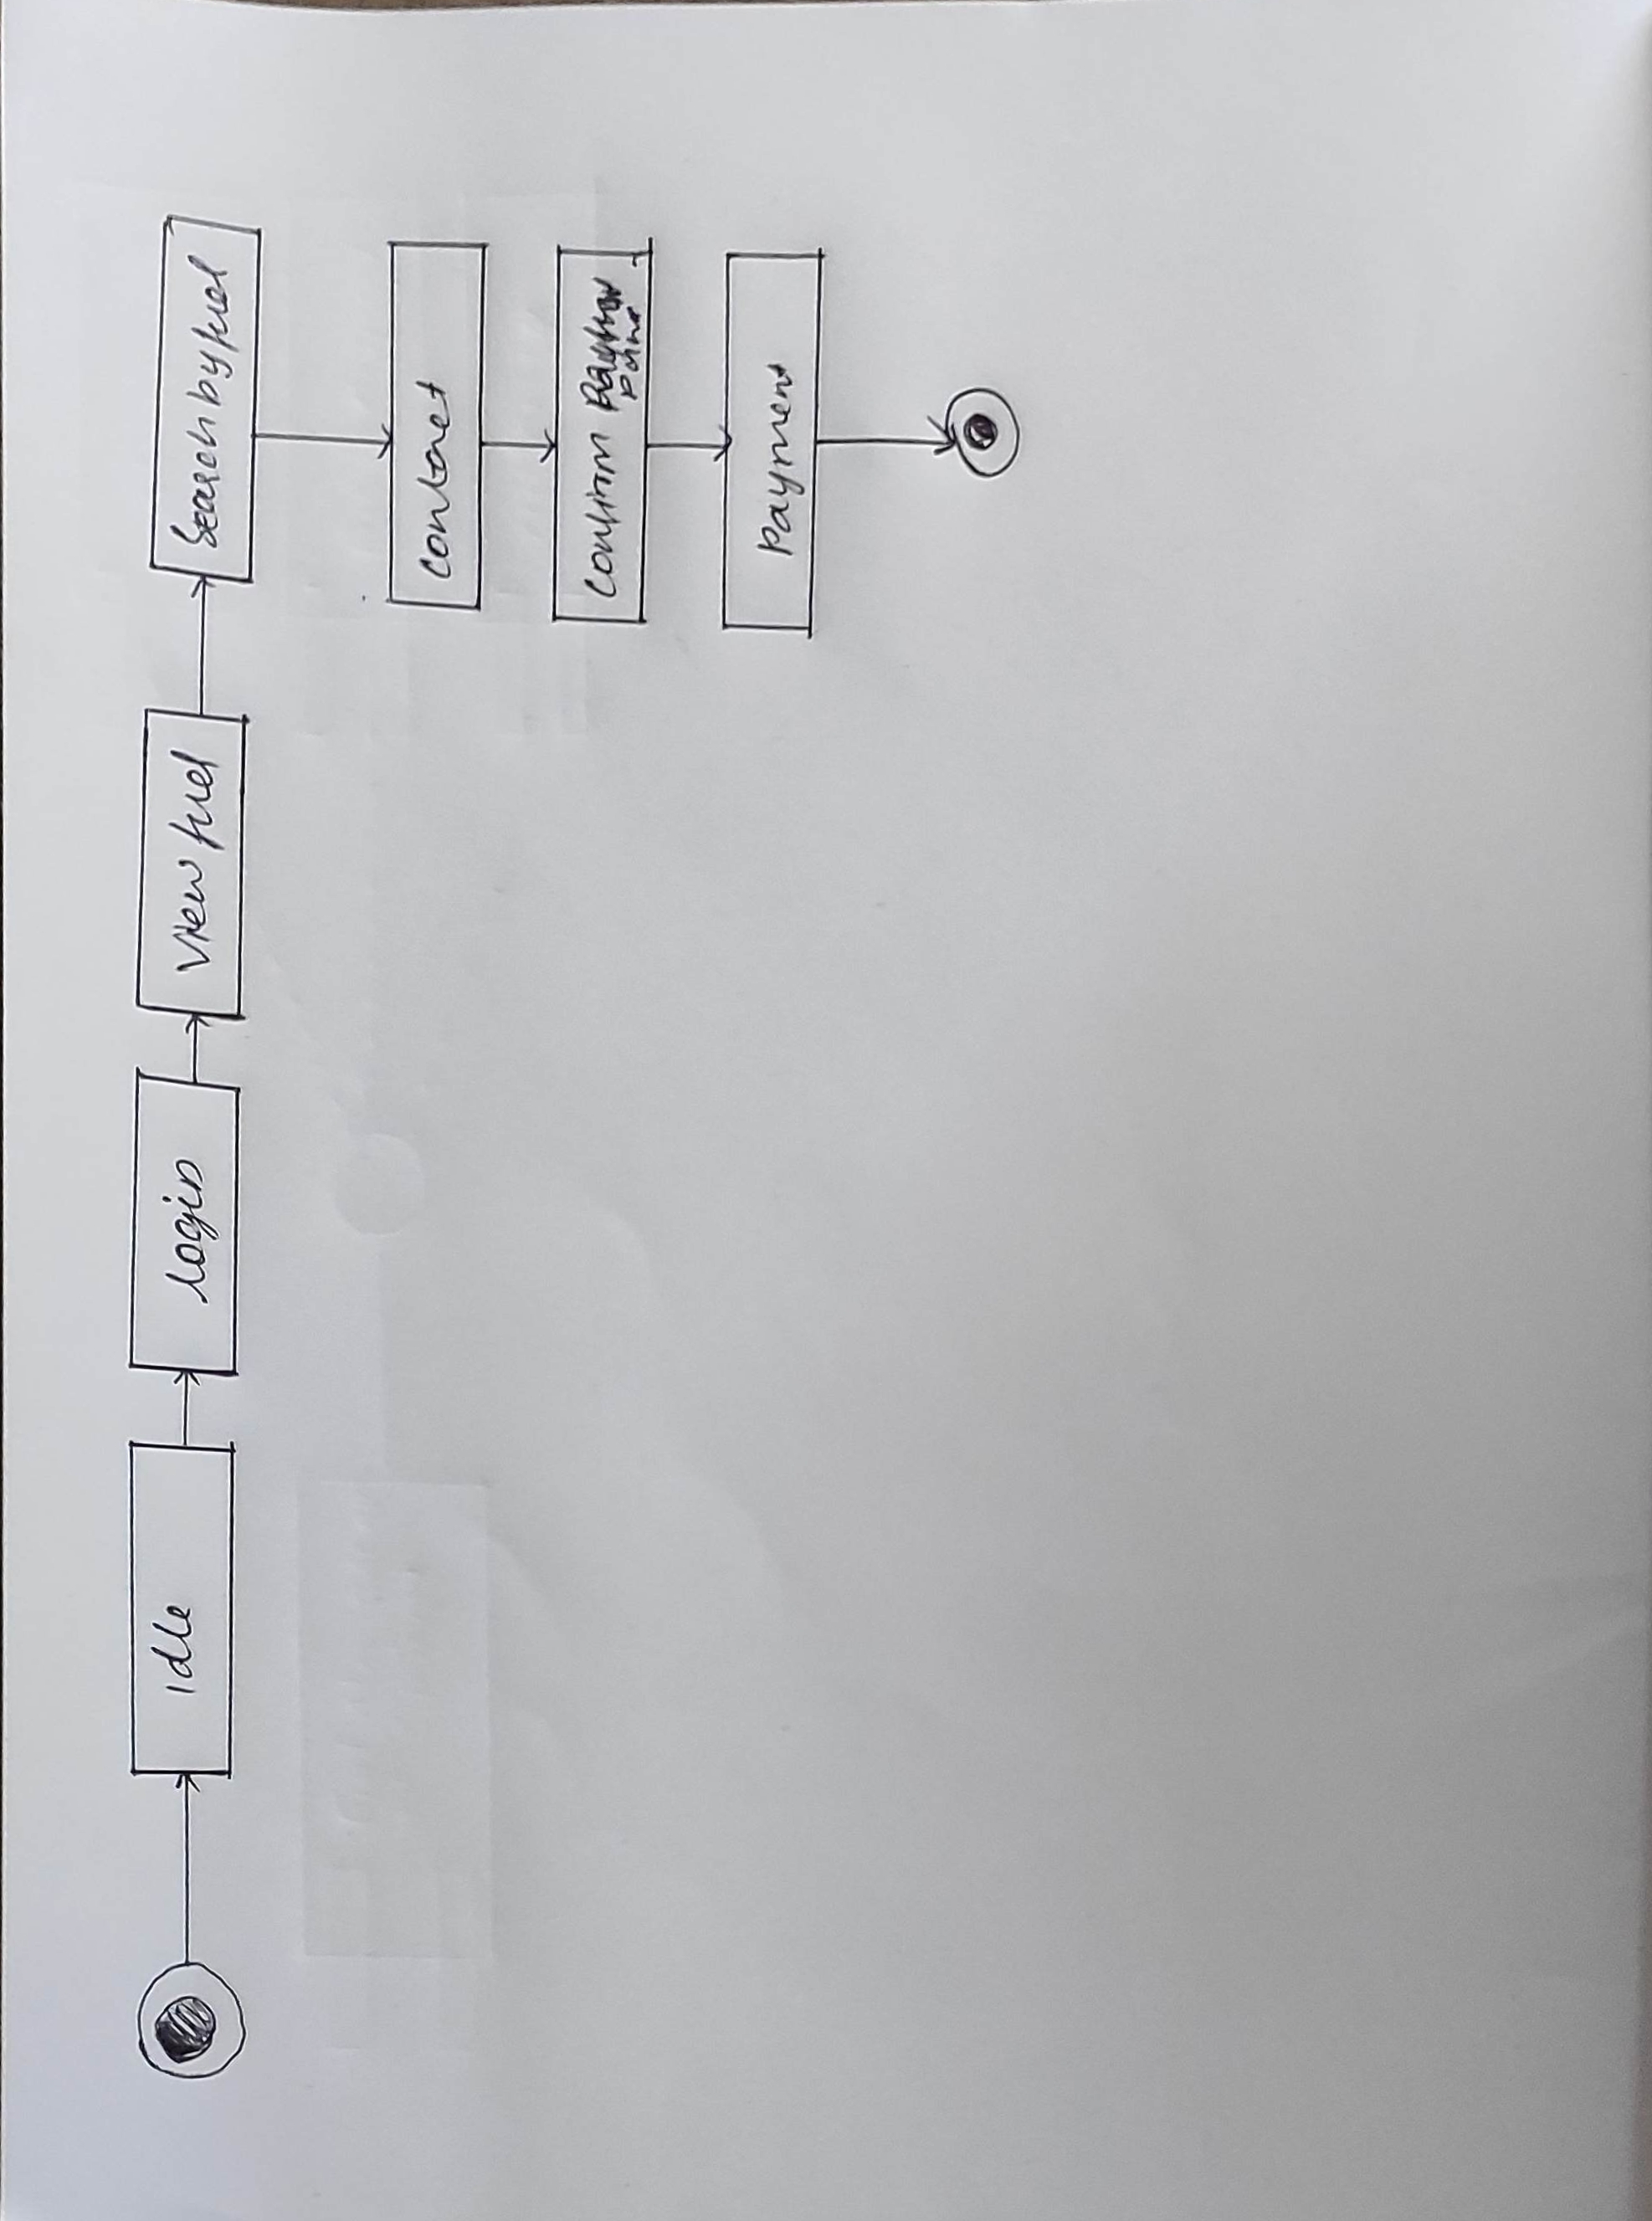 Idle
Login
View fuel
Search by fuel
Contact
Confirm
Payment